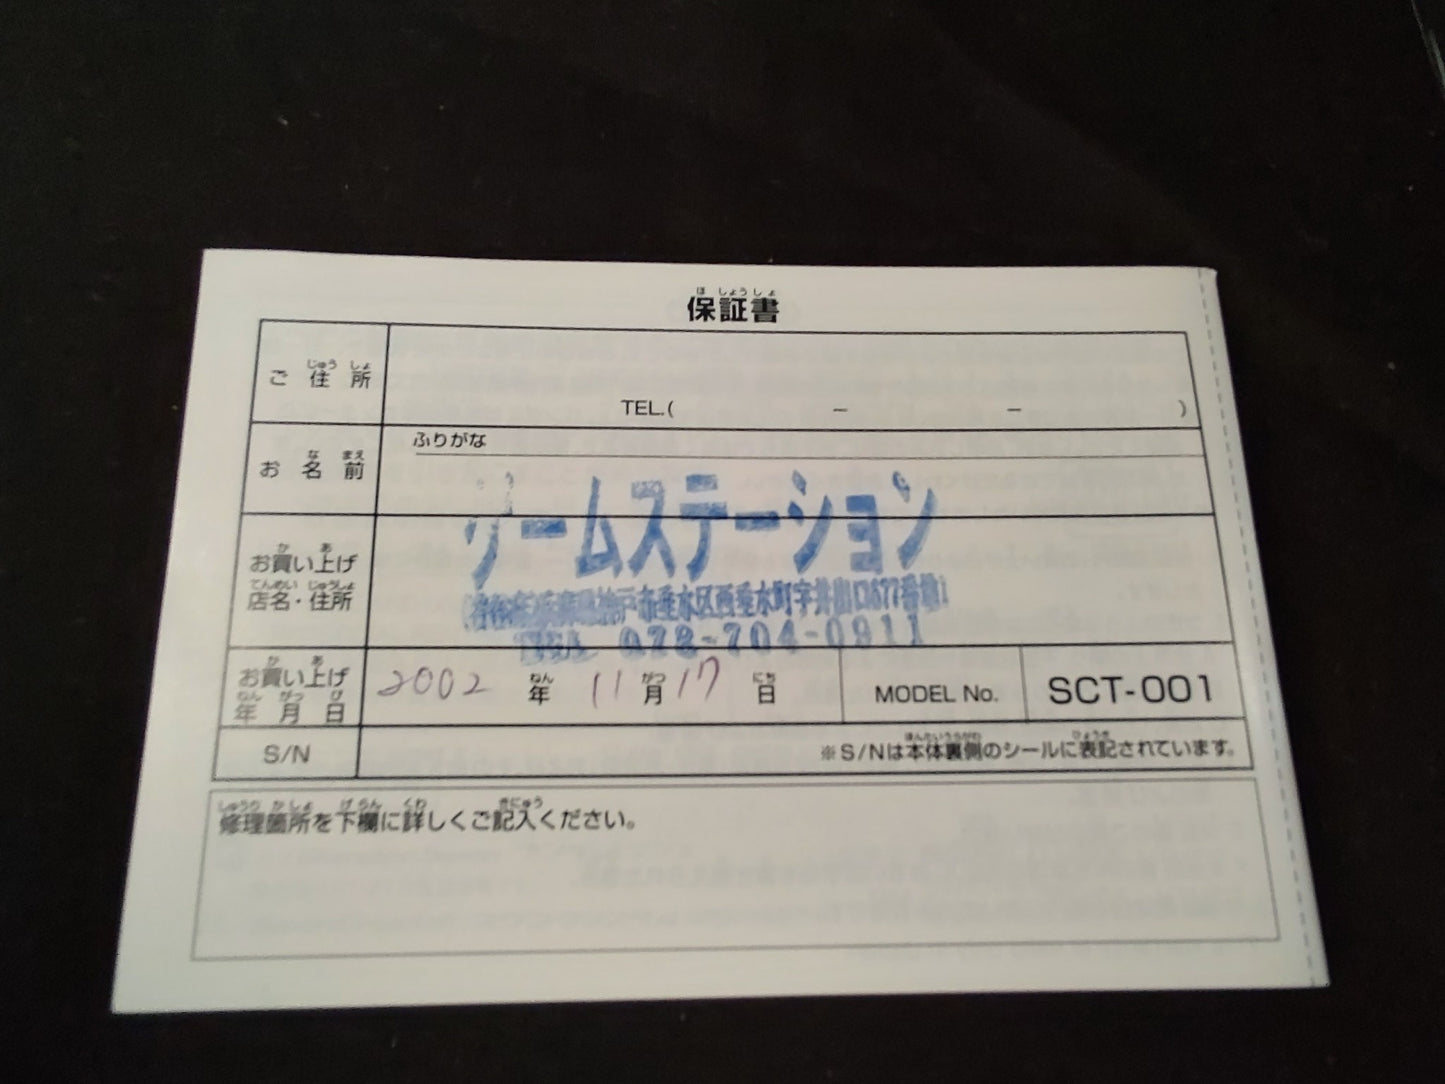 保証書
ご住所
TEL.( － － )
お名前
ふりがな
お買い上げ
店名・住所
ゲームステーション
神戸市垂水区西垂水町字井出口677番地1
TEL 078-704-0911
お買い上げ
年月日
2002年11月17日
MODEL No.
SCT-001
S/N
※S/Nは本体裏側のシールに表記されています。
修理箇所を下欄に詳しくご記入ください。